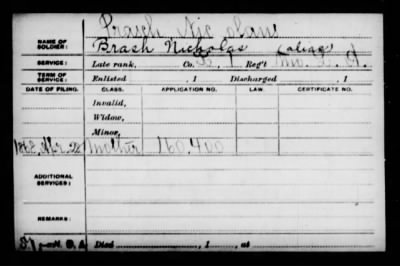 Prasch Nicolaus
NAME OF SOLDIER:
Brash Nicholas (alias)
SERVICE: Late rank, Co. Reg't Mo. L. A.
TERM OF SERVICE: Enlisted , 1 Discharged , 1
DATE OF FILING. CLASS. APPLICATION NO. LAW. CERTIFICATE NO.
Invalid,
Widow,
Minor,
Mother 160.400
ADDITIONAL SERVICES:
REMARKS:
Died , 1 , at